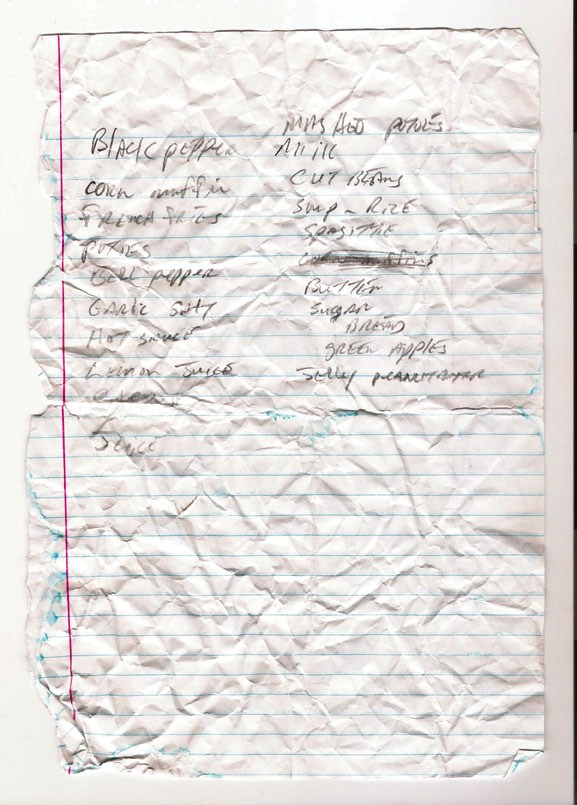 Black pepper
corn muffin
French fries
Potoes
Bell pepper
Garlic salt
Hot sauce
Lemon Juice
Juice
Mashed potoes
Milk
Cut Beans
Soup - Rice
Butter
Sugar
Bread
green Apples
Jelly